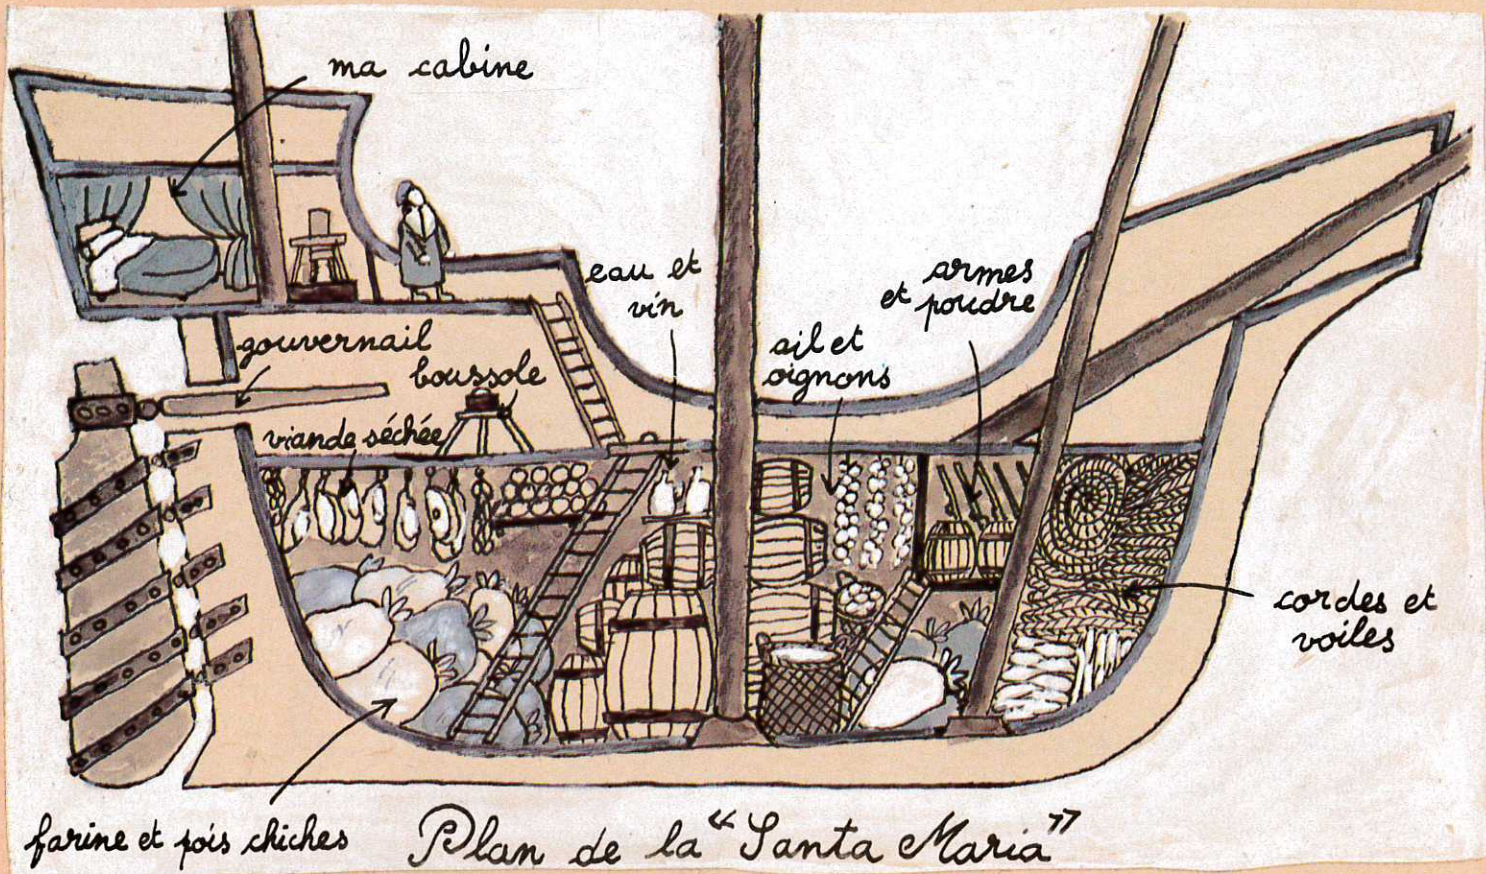 ma cabine
eau et
vin
armes
et poudre
gouvernail
boussole
ail et
oignons
viande séchée
cordes et
voiles
farine et pois chiches
Plan de la "Santa Maria"